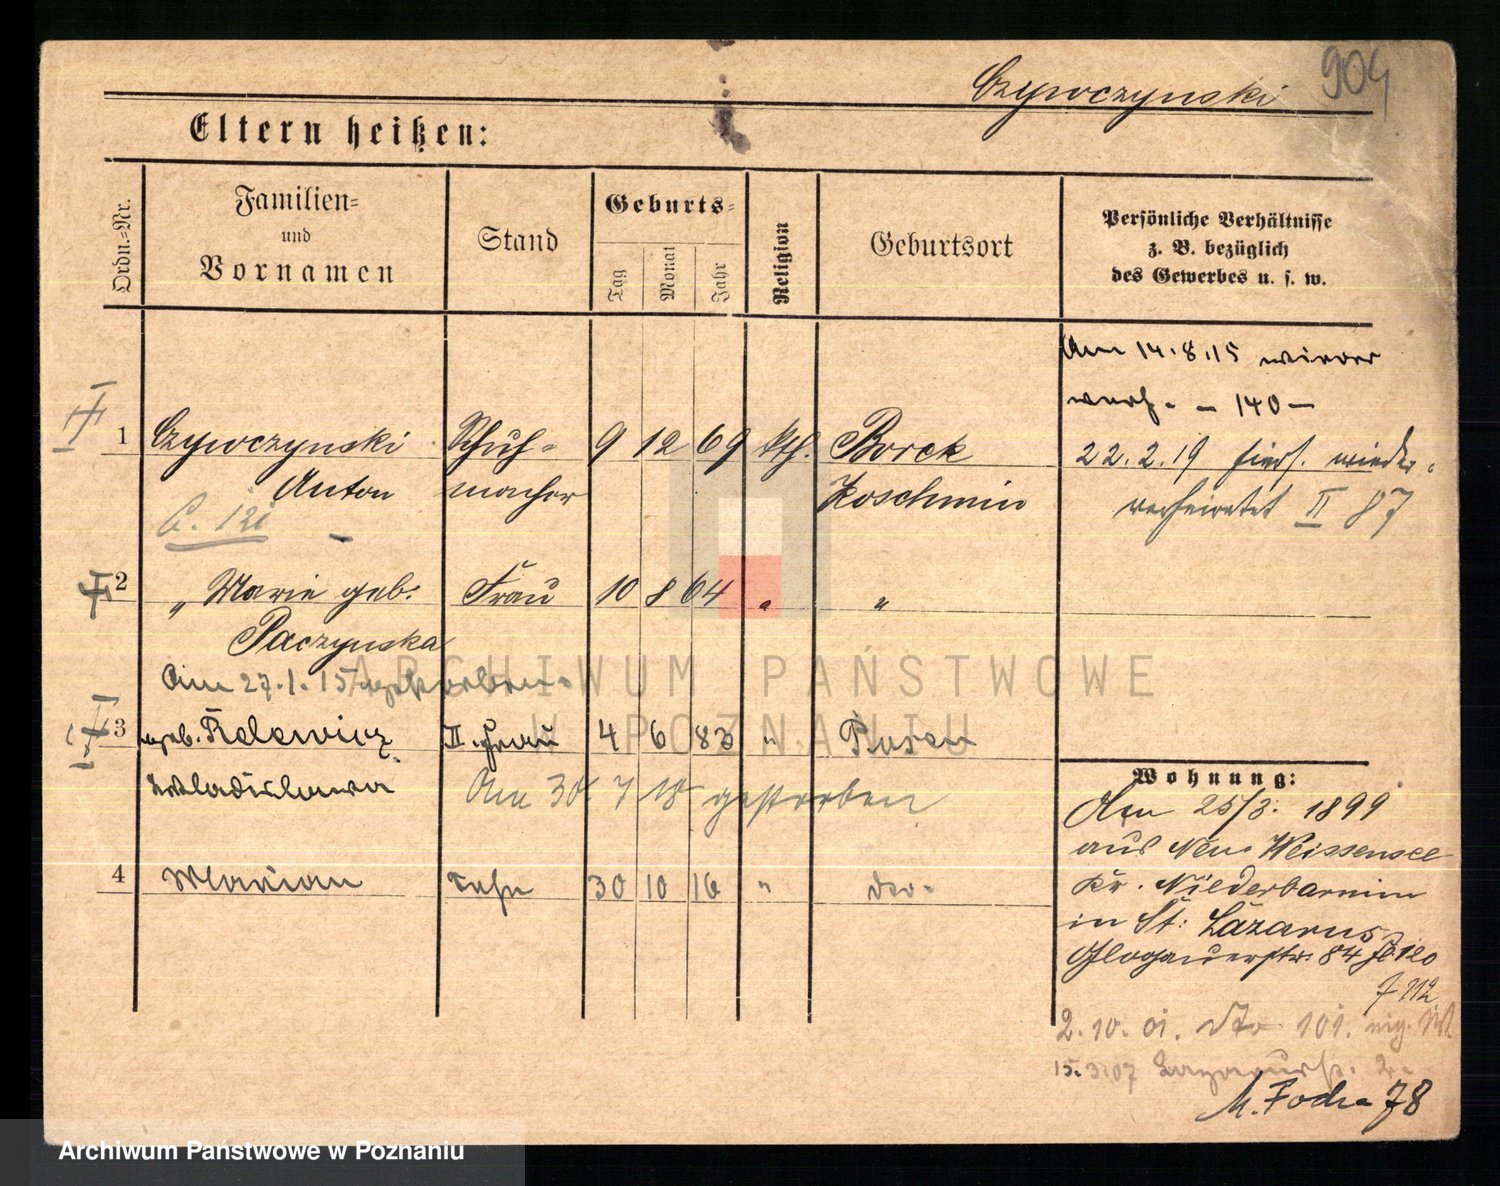 Czywczynski 904
Eltern heißen:
Ordn.-Nr.
Familien-
und
Vornamen
Stand
Geburts-
Tag
Monat
Jahr
Religion
Geburtsort
Persönliche Verhältnisse
z. B. bezüglich
des Gewerbes u. s. w.
Am 14.8.15 wieder
verh. - 140 -
1 Czywczynski Schuh- 9 12 69 kth. Borek
22.2.19 hiers. wieder-
Anton macher Koschmin
verheiratet II 87
2 " Marie geb. Frau 10 8 64 " "
Paczynska
Am 27.1.15 gestorben.
3 geb. Relewicz II. Frau 4 6 83 " Posen
Wladislawa Am 30. 7 18 gestorben
4 Marian Sohn 30 10 16 " do.
Wohnung:
Den 25/3. 1899
aus Neu-Weissensee
Kr. Niederbarnim
in St. Lazarus
Glogauerstr. 84
2.10.01. dto 101.
15.3.07 Lazarusstr. 2.
M. Focha 78
ARCHIWUM PAŃSTWOWE
W POZNANIU
Archiwum Państwowe w Poznaniu